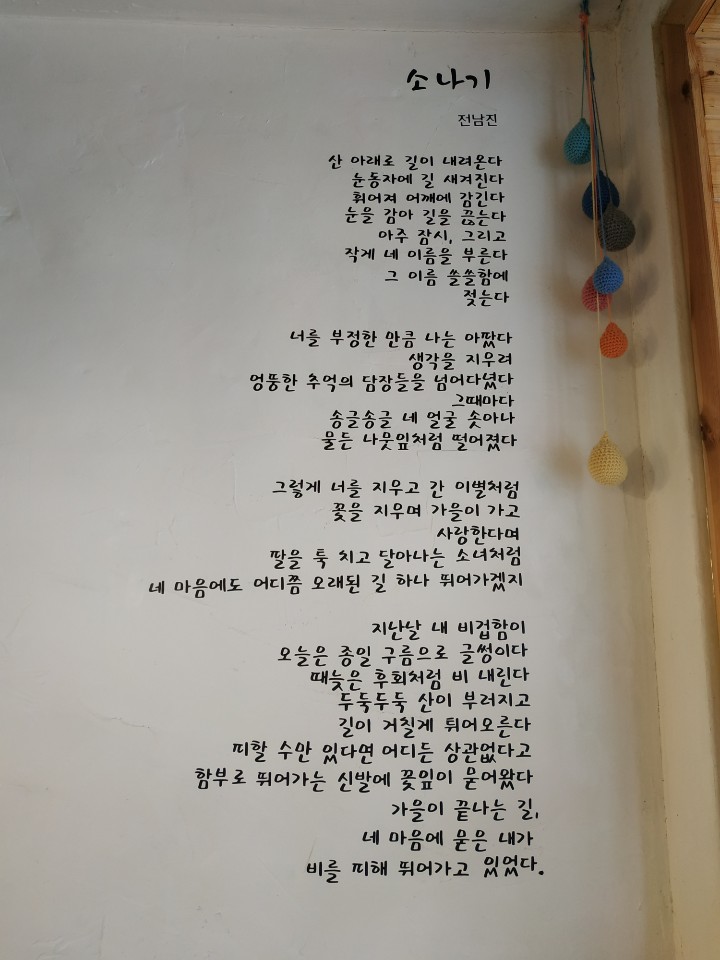 소나기
전남진
산 아래로 길이 내려온다
눈동자에 길 새겨진다
휘어져 어깨에 감긴다
눈을 감아 길을 끊는다
아주 잠시, 그리고
작게 네 이름을 부른다
그 이름 쓸쓸함에
젖는다
너를 부정한 만큼 나는 아팠다
생각을 지우려
엉뚱한 추억의 담장들을 넘어다녔다
그때마다
송글송글 네 얼굴 솟아나
물든 나뭇잎처럼 떨어졌다
그렇게 너를 지우고 간 이별처럼
꽃을 지우며 가을이 가고
사랑한다며
팔을 툭 치고 달아나는 소녀처럼
네 마음에도 어디쯤 오래된 길 하나 뛰어가겠지
지난날 내 비겁함이
오늘은 종일 구름으로 글썽이다
때늦은 후회처럼 비 내린다
두둑두둑 산이 부러지고
길이 거칠게 튀어오른다
피할 수만 있다면 어디든 상관없다고
함부로 뛰어가는 신발에 꽃잎이 묻어왔다
가을이 끝나는 길,
네 마음에 묻은 내가
비를 피해 뛰어가고 있었다.